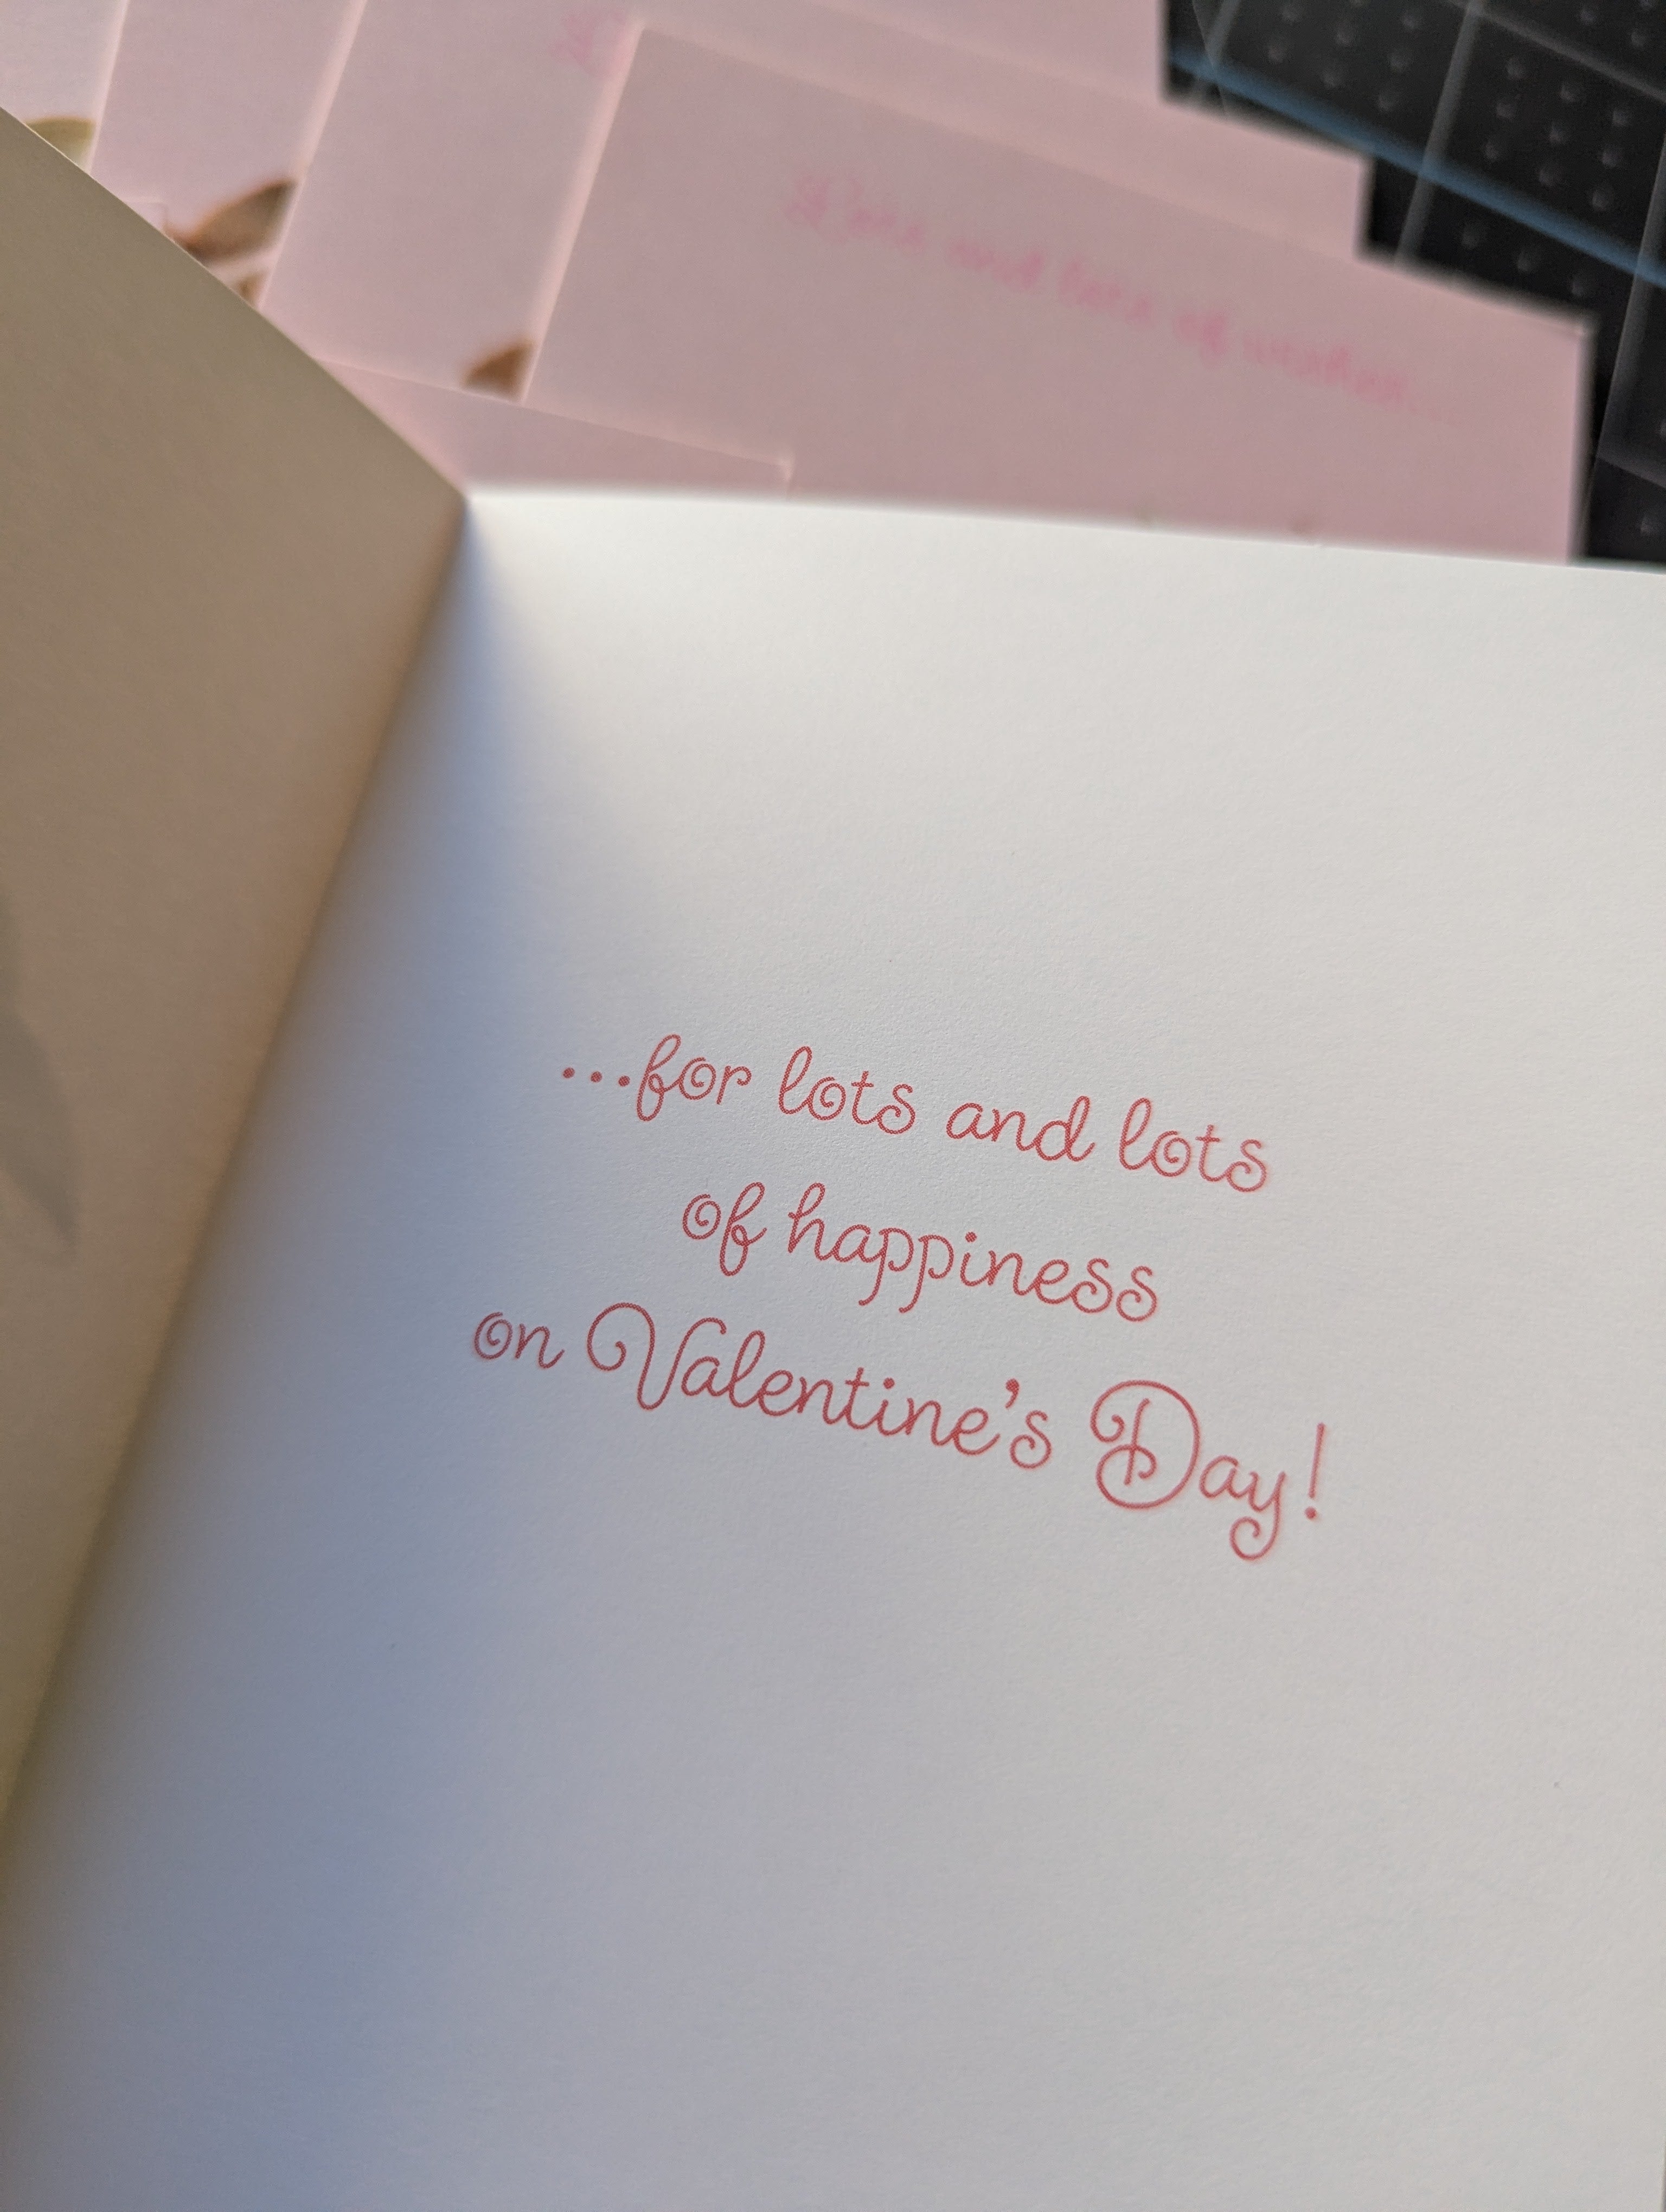 Lots and lots of wishes...
...for lots and lots
of happiness
on Valentine's Day!